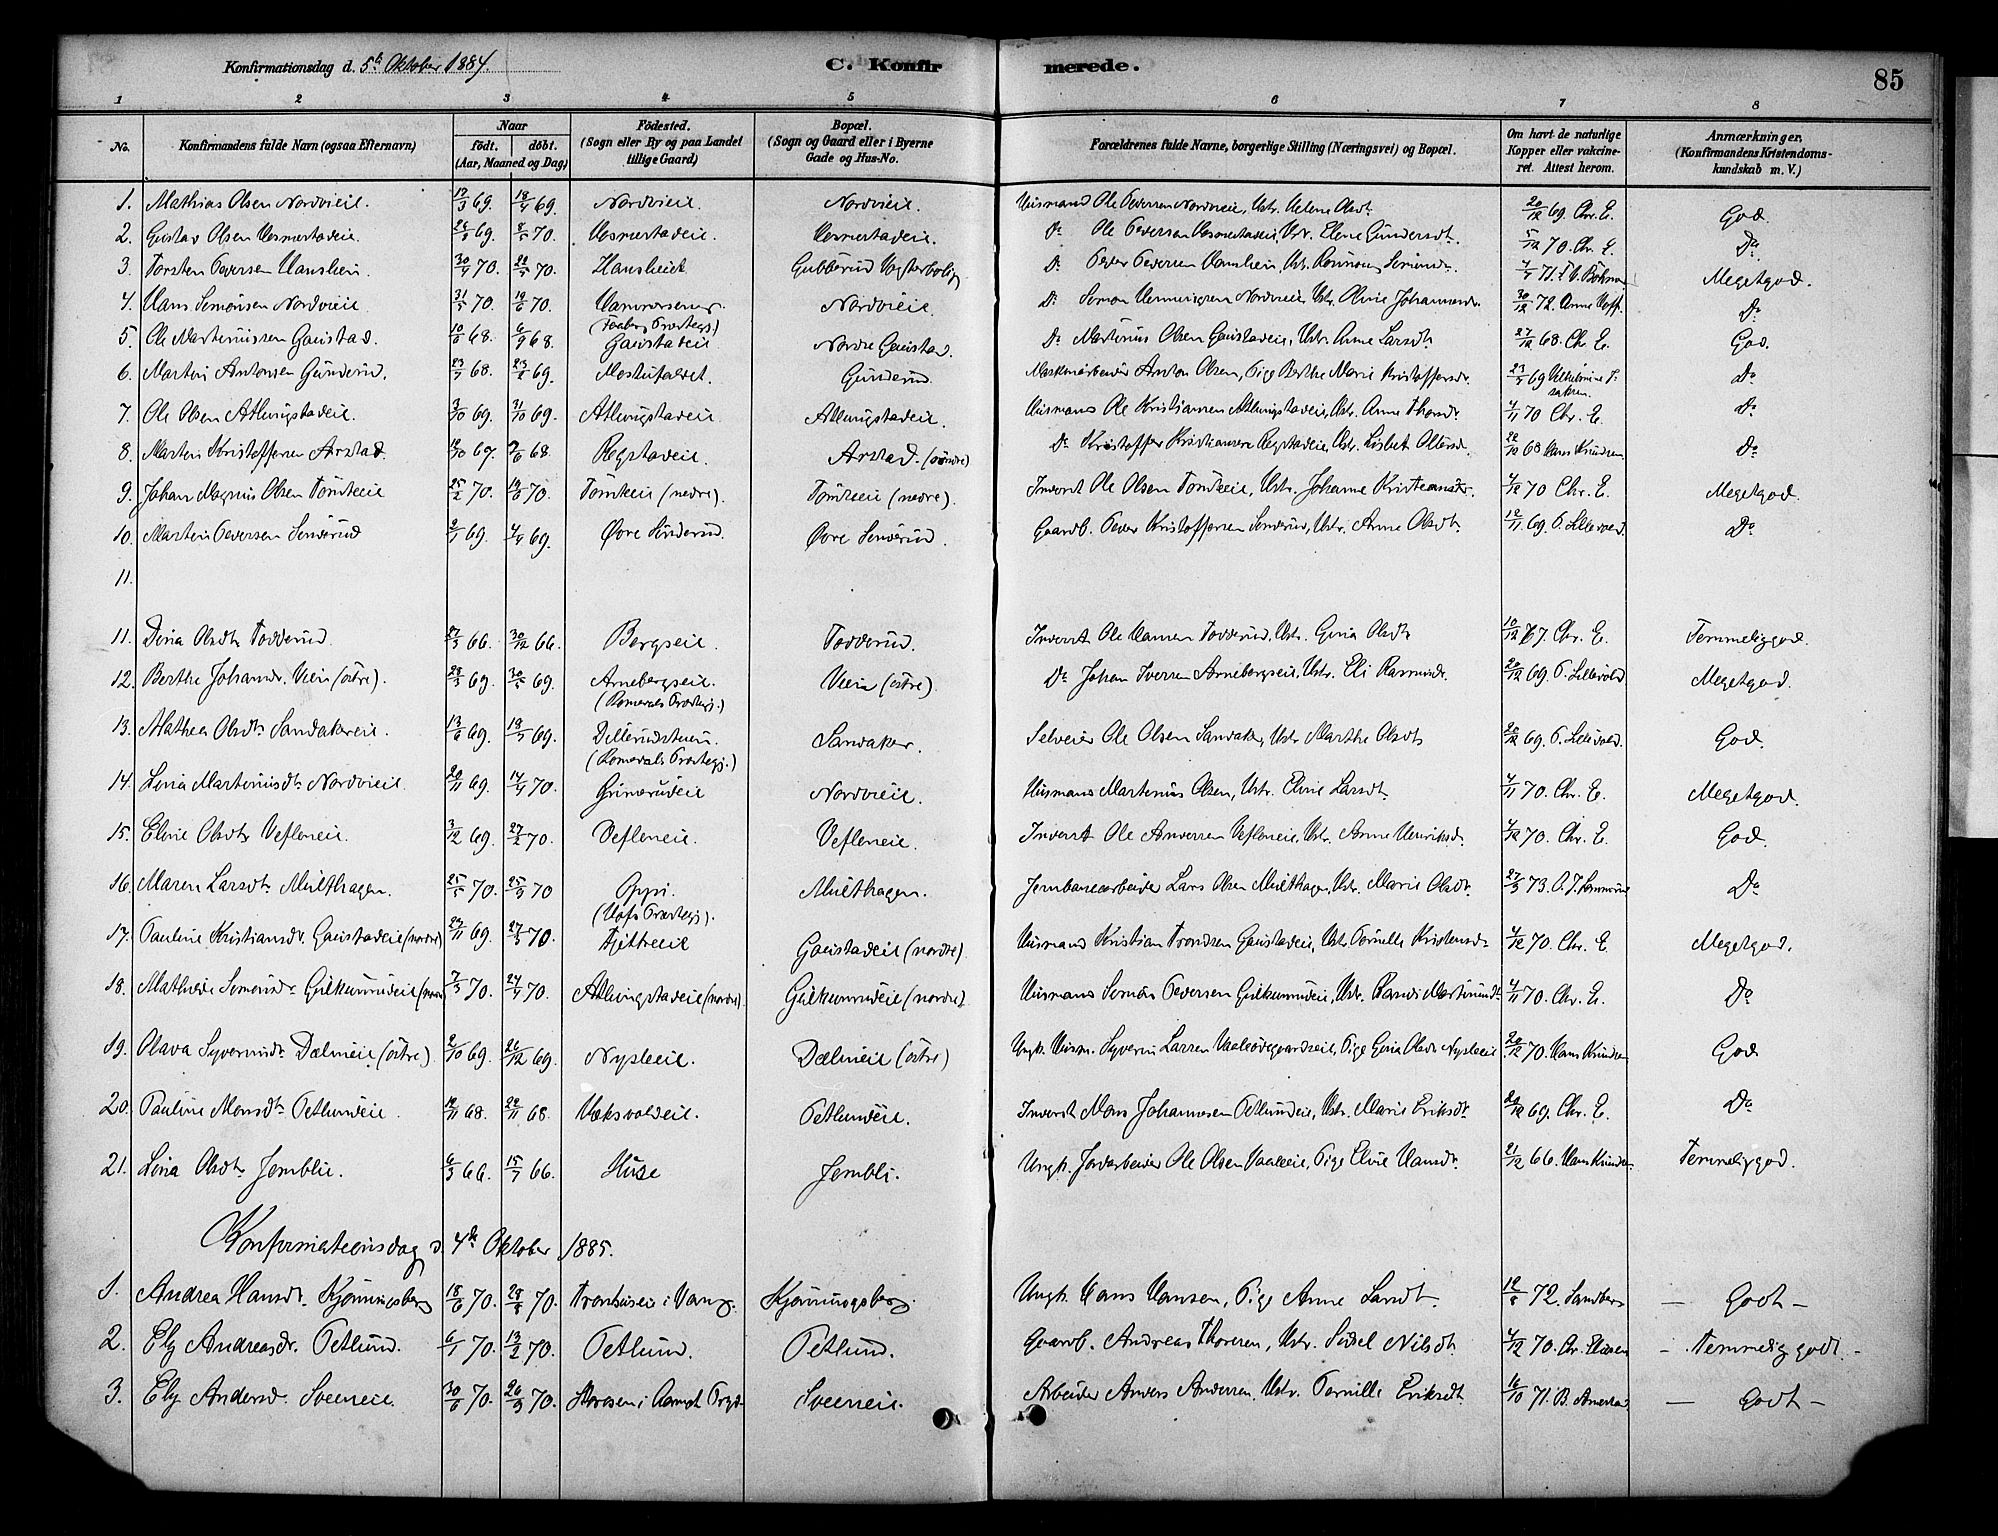 85
Konfirmationsdag d. 5te Oktober 1884.
C. Konfirmerede.
1 2 3 4 5 6 7 8
No. Konfirmandens fulde Navn (ogsaa Efternavn) Naar født. døbt. (Aar, Maaned og Dag) Födested. (Sogn eller By og paa Landet tillige Gaard) Bopæl. (Sogn og Gaard eller i Byerne Gade og Hus-No. Forældrenes fulde Navne, borgerlige Stilling (Næringsvei) og Bopæl. Om havt de naturlige Kopper eller vakcineret. Attest herom. Anmærkninger, (Konfirmandens Kristendomskundskab m. V.)
1. Mathias Olsen Nordvieie. 17/3 69. 18/4 69. Nordvieie. Nordvieie. Husmand Ole Pedersen Nordvieie, Ustr. Helene Olsdtr 20/12 69. Chr. E. God.
2. Gustav Olsen 69. 70. Ole Pedersen Ustr. Elene Gundersdtr. 5/12 70. Chr. E. Do
3. Torsten Pedersen Hanslien. 30/4 70. 70. Hanslien Gubberud Vogterbolig Do Peder Pedersen Hanslien, Ustr. 71. Megetgod.
4. Hans Simonsen Nordvieie 31/5 70. 19/6 70. Nordvieie. Do Simon Henningsen Nordvieie, Ustr. Olive Johannesdr. 30/12 72. Anne Hoff. Do
5. Ole Martinussen Gaustad. 68. 6/9 68. (Faabergs Præstegj.) Gaustadeie Nordre Gaustad. Do Martinus Olsen Gaustadeie, Ustr. Anne Larsdtr 27/12 68. Chr. E. God.
6. Martin Antonsen Gunderud. 23/7 68. 23/2 69. Mostufaldet. Gunderud. Anton Olsen, Pige Berthe Marie Kristoffersdr. 69 Do
7. Ole Olsen Atlungstadeie. 3/10 69. 31/10 69. Atlungstadeie Atlungstadeie. Husmand Ole Kristiansen Atlungstadeie, Ustr. Anne Thorsdr. 4/11 70 Chr. E. Do
8. Martin Kristoffersen Aarstad. 19/10 67. 68. Regstadeie. Aarstad. (søndre) Do Kristoffer Kristiansen Regstadeie, Ustr. Lisbet Olsdr. 22/10 68 Hans Knudsen. Do
9. Johan Magnus Olsen Tomteeie 25/2 70. 19/6 70. Tomteeie (nedre). Tomteeie (nedre). Inderst Ole Olsen Tomteeie, Ustr. Johanne Kristiansdr. 4/12 70 Chr. E. Megetgod.
10. Martin Pedersen Sinderud 2/1 69. 4/4 69. Øvre Sinderud. Øvre Sinderud. Gaardb. Peder Kristoffersen Sinderud, Ustr. Anne Olsdtr. 12/11 69. P. Lillevold. Do
11.
11. Dina Olsdtr Todderud 27/3 66. 30/12 66. Bergseie. Todderud. Inderst Ole Hansen Todderud, Ustr. Gina Olsdtr 10/12 67. Chr. E. Temmeliggod.
12. Berthe Johansdr. Vien (østre). 28/3 69. 30/5 69. Arnebergseie. (Romedals Præstegj.) Vien (østre). Do Johan Iversen Arnebergseie, Ustr. Eli Rasmusdr. 20/12 69. P. Lillevold. Megetgod.
13. Mathea Olsdtr Sandakereie. 13/6 69. 18/7 69. (Romedals Præstegj.) Sandaker. Selveier Ole Olsen Sandaker, Ustr. Marthe Olsdtr 20/12 69. P. Lillevold. God.
14. Lina Martinusdtr Nordvieie. 20/11 69. 14/4 70. Grimerudeie Nordvieie. Husmand Martinus Olsen, Ustr. Eline Larsdtr. 4/11 70. Chr. E. Megetgod.
15. Eline Olsdtr Vefleneie. 3/12 69. 27/2 70. Vefleneie. Vefleneie. Inderst Ole Andersen Vefleneie, Ustr. Anne Henriksdr. 4/12 70. Chr. E. God.
16. Maren Larsdtr Multhagen. 25/5 70. 25/9 70 (Hofs Præstegj.). Multhagen. Jernbanearbeider Lars Olsen Multhagen, Ustr. Marie Olsdtr. 27/3 73. Do
17. Pauline Kristiansdr. Gaustadeie (nordre) 29/11 69. 27/3 70. Tjetteeie Gaustadeie (nordre). Husmand Kristian Trondsen Gaustadeie, Ustr. Pernille Kristensdr. 4/12 70. Chr. E Megetgod.
18. Mathea Simensdr. Gulkerudeie (nordre) 7/3 70. 24/4 70. Atlungstadeie (nordre). (nordre) Husmand Simon Pedersen Ustr. Randi Martinusdtr. 4/11 70. Chr. E. Do
19. Olava Syverinsdtr Dælineie (østre). 2/10 69. 26/12 69. Nysteeie. Dælineie (østre) Ungk. Husm. Syverin Larsen Pige Gina Olsdr. Nysteeie 20/12 70. Hans Knudsen God
20. Pauline Monsdtr Petlundeie. 12/11 68. 22/11 68. Veksvoldeie. Petlundeie. Inderst Mons Johannesen Petlundeie, Ustr. Marie Eriksdtr. 20/12 69. Chr. E. Do
21. Lina Olsdtr Jembli. 6/3 66. 15/7 66. Huse Jembli. Ungk. Jordarbeider Ole Olsen Vaaleeie, Pige Eline Hansdtr. 21/12 66. Hans Knudsen. Temmeliggod.
Konfirmationsdag d. 4de Oktober 1885.
1. Andrea Hansdr. Kjonningsberg 18/6 70. 28/8 70. i Vang. Kjønningsberg. Ungk. Hans Hansen, Pige Anne Larsdtr. 12/8 72. Sandberg — Godt —
2. Ely Andreasdr. Petlund. 6/1 70. 13/2 70. Petlund. Petlund. Gaardb. Andreas Thoresen, Ustr. Sidsel Nilsdtr. 4/12 70. - Temmelig godt. -
3. Ely Andersd. Sveeneie. 30/6 70. 26/9 70. i Aamot Prgd. Sveeneie. Arbeider Anders Andersen, Ustr. Pernille Eriksdtr. 16/10 71. — Godt —